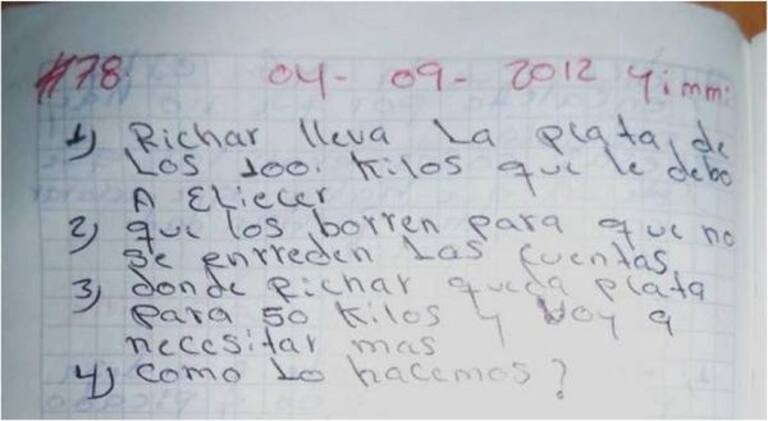 #78. 04- 09- 2012 Yimmi
1) Richar lleva La plata de
Los 100. Kilos que le debo
A Eliecer
2) que los borren para que no
se enrreden Las cuentas
3) donde Richar queda plata
para 50 Kilos y voy a
necesitar mas
4) como Lo hacemos?